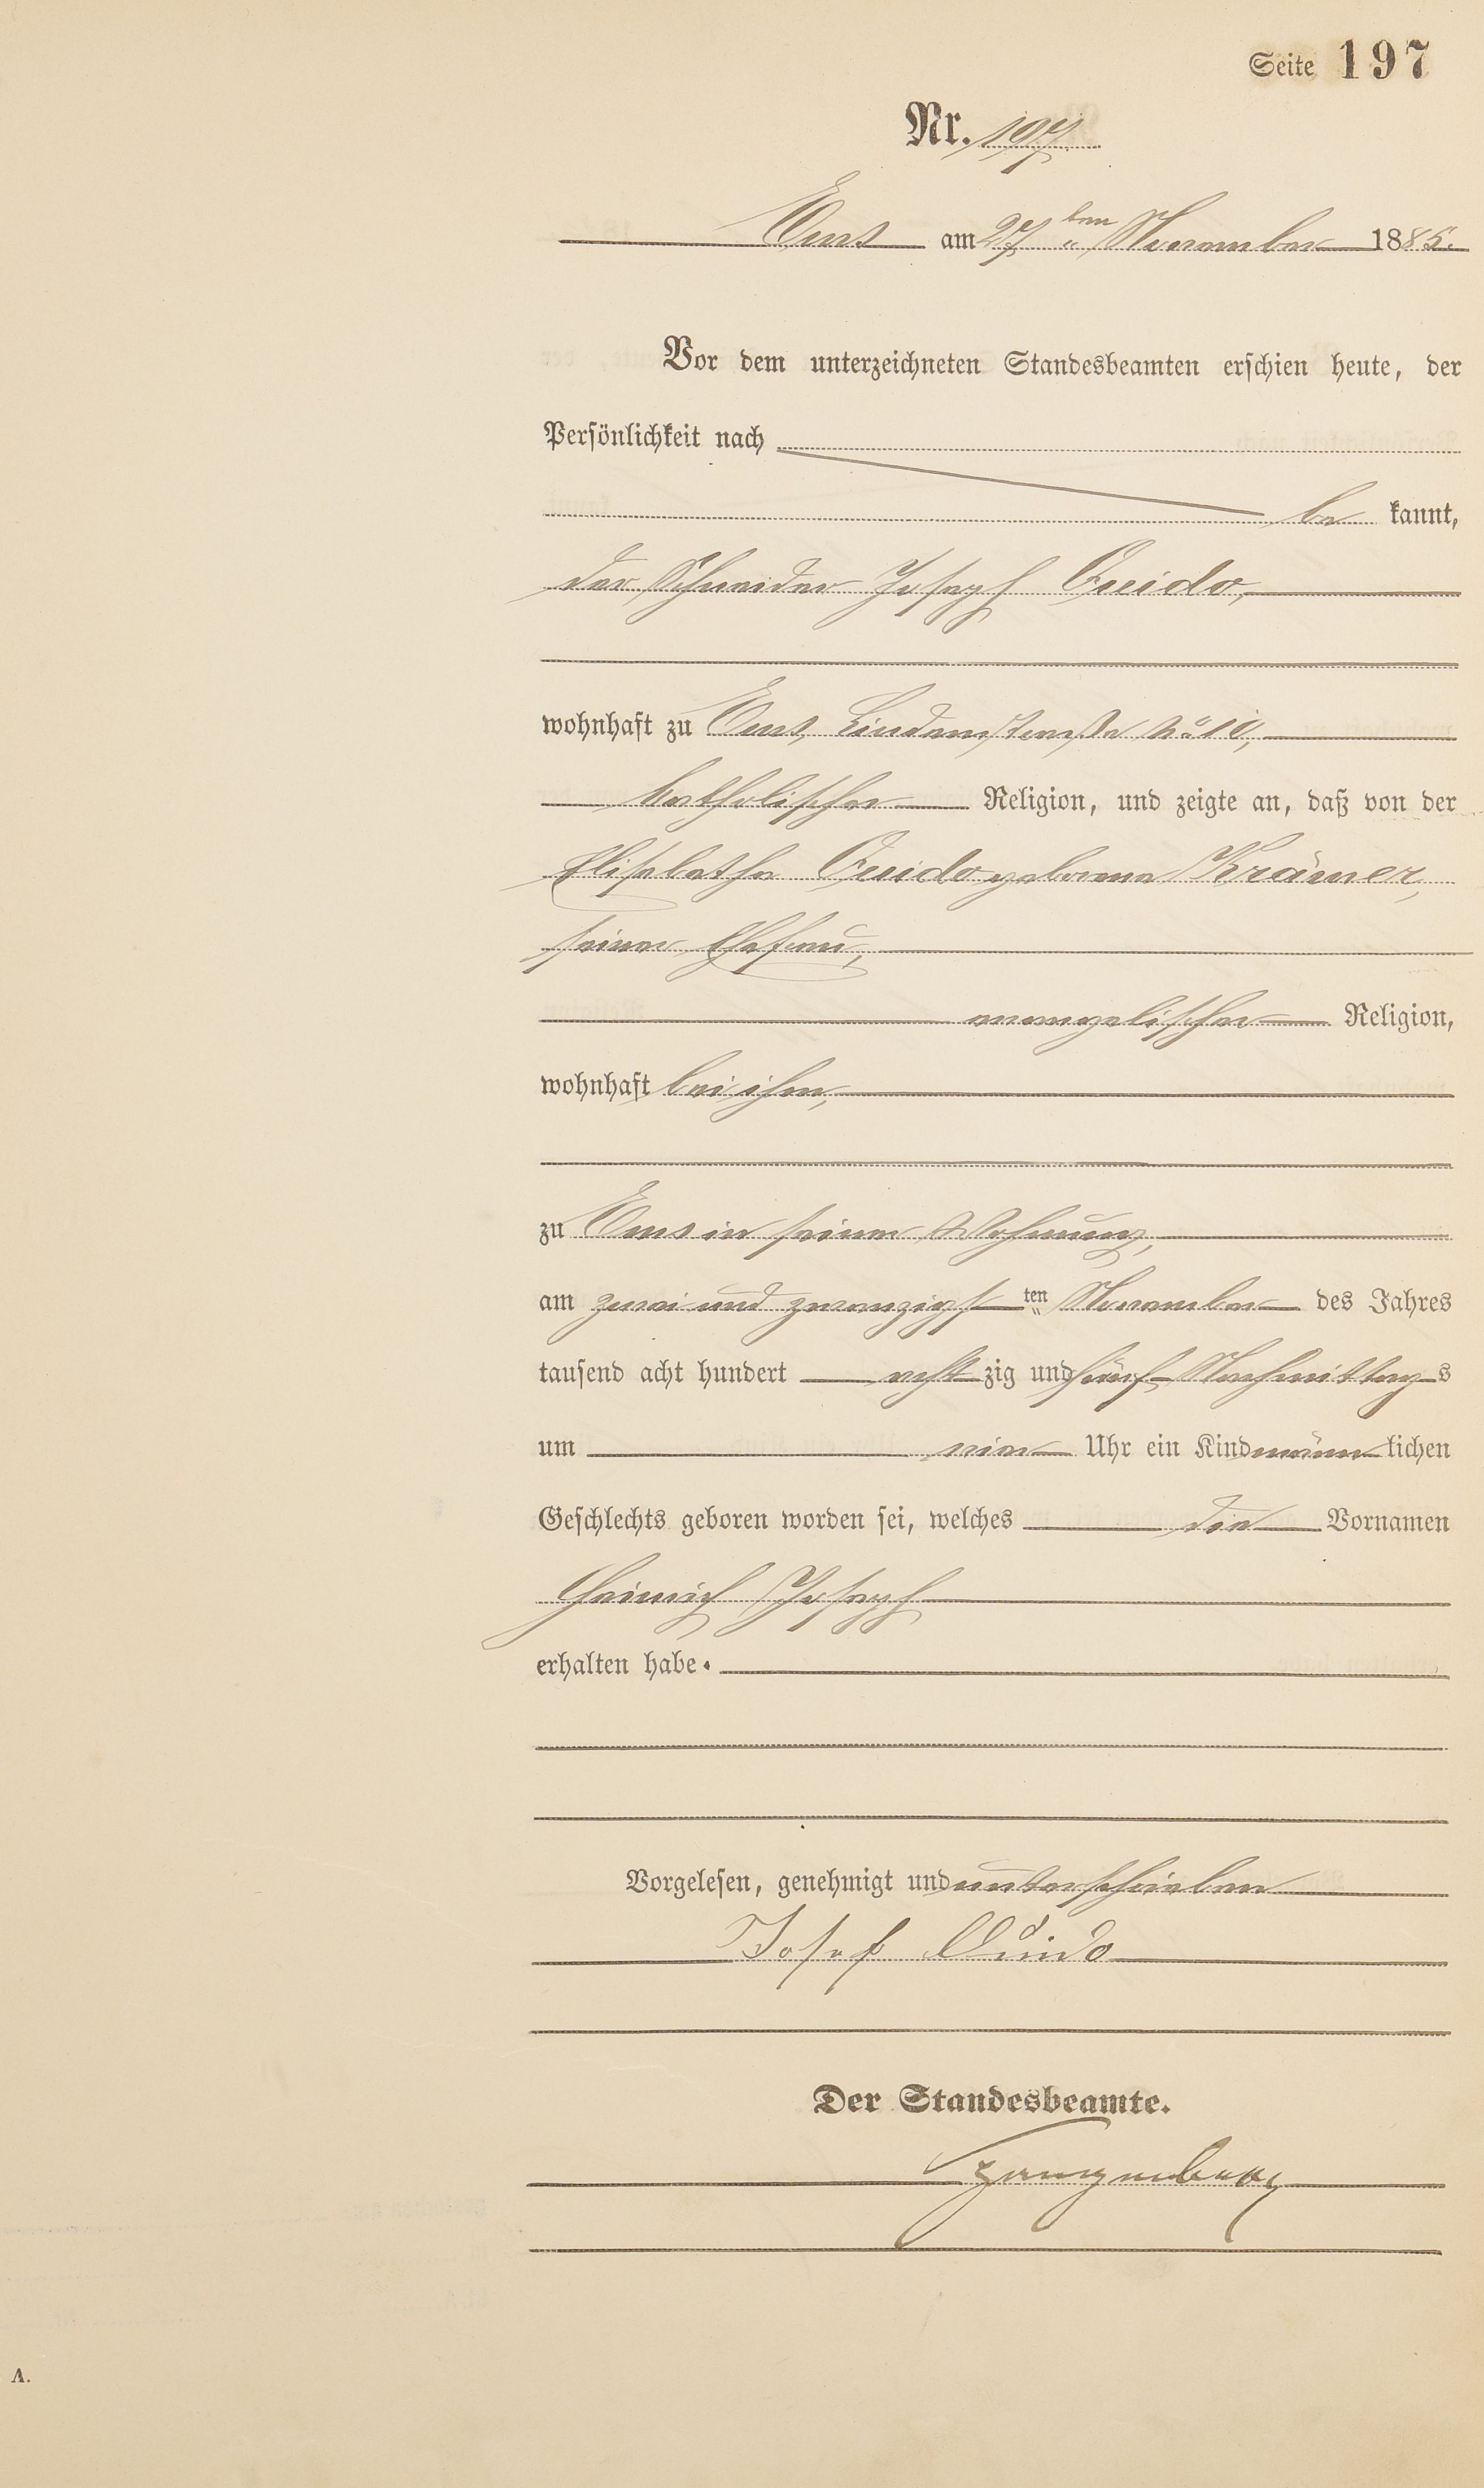 Seite 197
Nr. 197
Ems am 27ten November 1885.
Vor dem unterzeichneten Standesbeamten erschien heute, der
Persönlichkeit nach
be kannt,
der Schneider Joseph Guido,
wohnhaft zu Ems, Lindenstraße No 10,
katholischer Religion, und zeigte an, daß von der
Elisabetha Guido geborene Krämer,
seiner Ehefrau,
evangelischer Religion,
wohnhaft bei ihm,
zu Ems in seiner Wohnung,
am zwei und zwanzigsten November des Jahres
tausend acht hundert achtzig und fünf Nachmittags
um vier Uhr ein Kind männlichen
Geschlechts geboren worden sei, welches die Vornamen
Heinrich Joseph
erhalten habe.
Vorgelesen, genehmigt und unterschrieben
Josef Guido
Der Standesbeamte.
A.